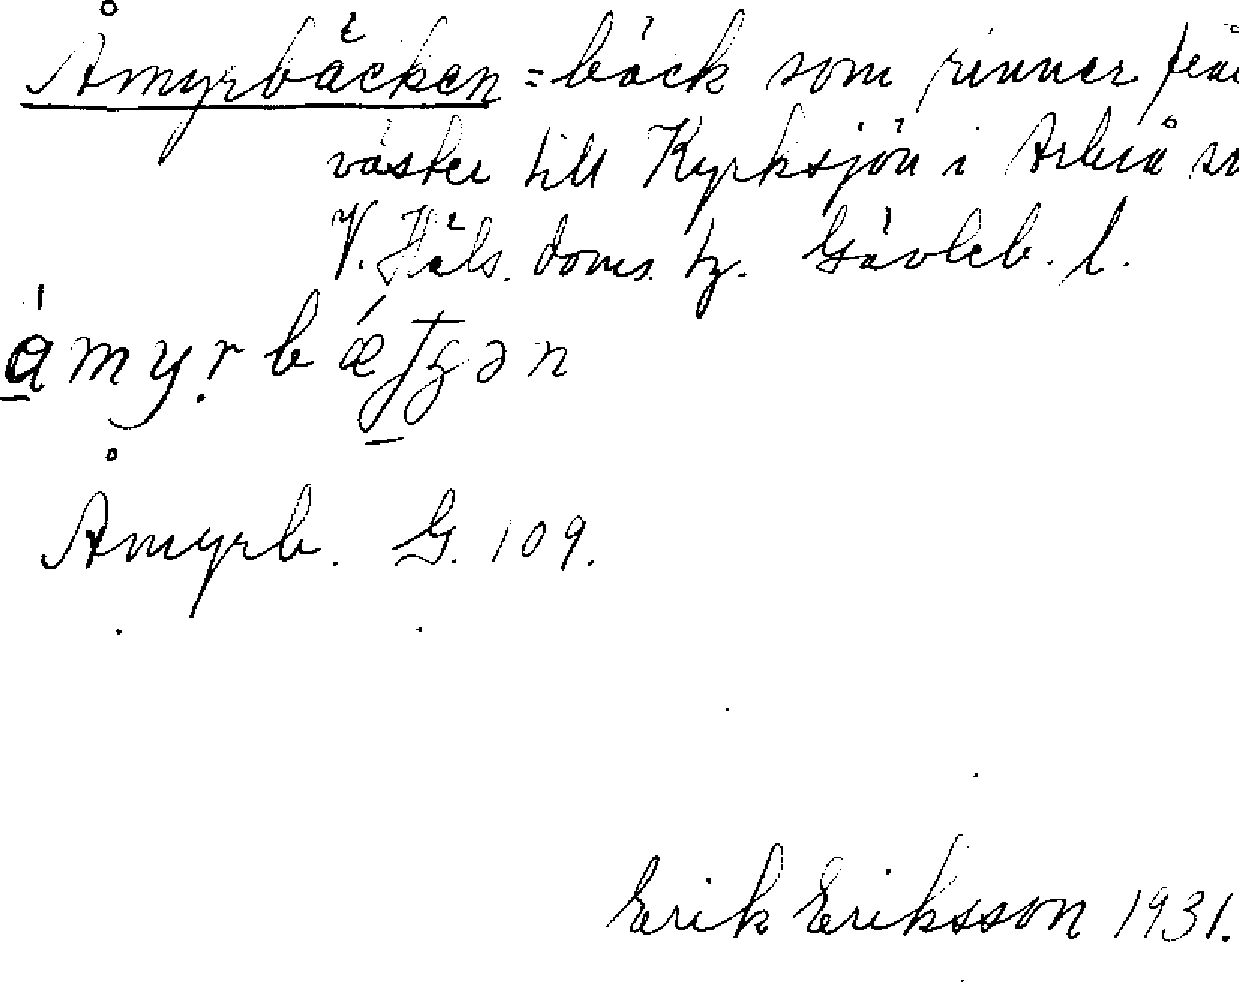 Åmyrbäcken = bäck som rinner från
väster till Kyrksjön i Arbrå sn
V. Häls. doms. tg. Gävleb. l.
Åmyrb. G. 109.
Erik Eriksson 1931.